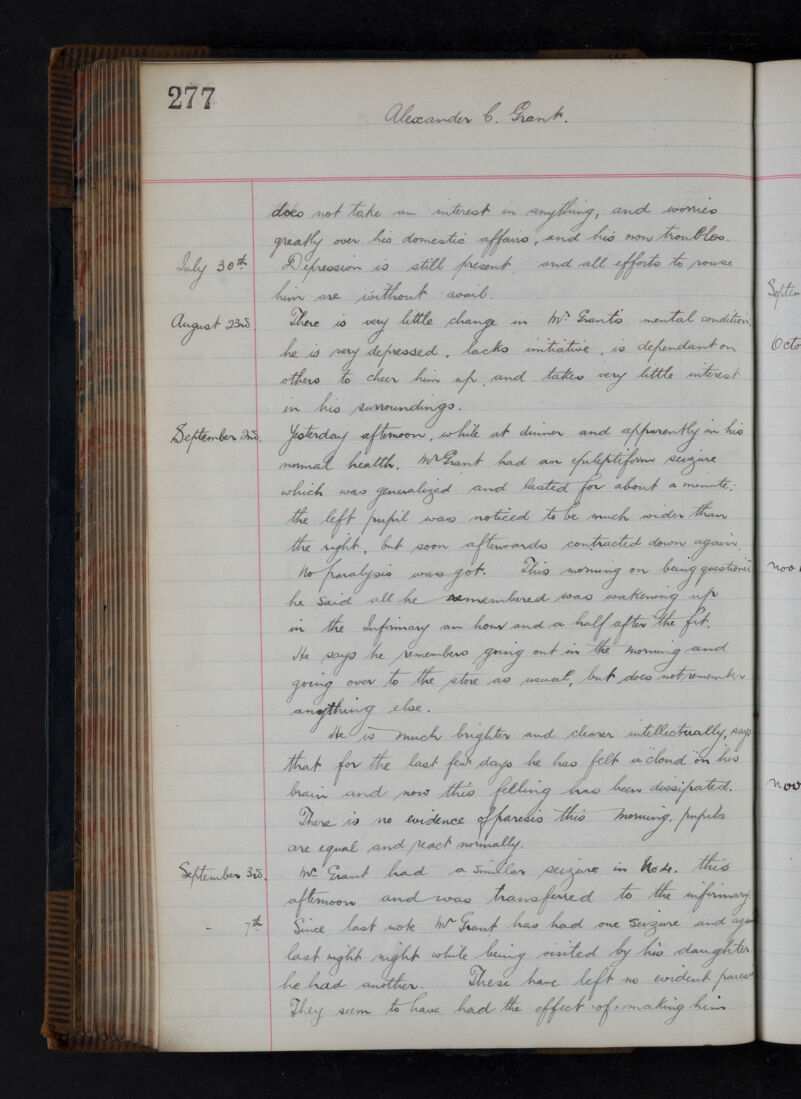 277
Alexander C. Grant.
does not take an interest in anything, and worries
greatly over his domestic affairs, and his own troubles.
July 30th Depression is still present, and all efforts to rouse
him are without avail.
August 23rd. There is very little change in Mr Grant's mental condition;
he is very depressed, lacks initiative, is dependant on
others to cheer him up, and takes very little interest
in his surroundings.
September 2nd. Yesterday afternoon, while at dinner and apparently in his
normal health, Mr Grant had an epileptiform seizure
which was generalized and lasted for about a minute:
the left pupil was noticed to be much wider than
the right, but soon afterwards contracted down again.
No paralysis was got. This morning on being questioned
he said all he remembered was wakening up
in the Infirmary an hour and a half after the fit.
He says he remembers going out in the morning and
going over to the store as usual, but does not remember
anything else.
He is much brighter and clearer intellectually, says
that for the last few days he has felt a "cloud" on his
brain and now this felling has been dissipated.
There is no evidence of paresis this morning, pupils
are equal and react normally.
September 3rd. Mr Grant had a similar seizure in No 4. this
afternoon and was transferred to the infirmary.
- 7th Since last note Mr Grant has had one seizure and again
last night night while being visited by his daughter
he had another. These have left no evident paresis
They seem to have had the effect of making him
Septem
Octo
Nov
Nov